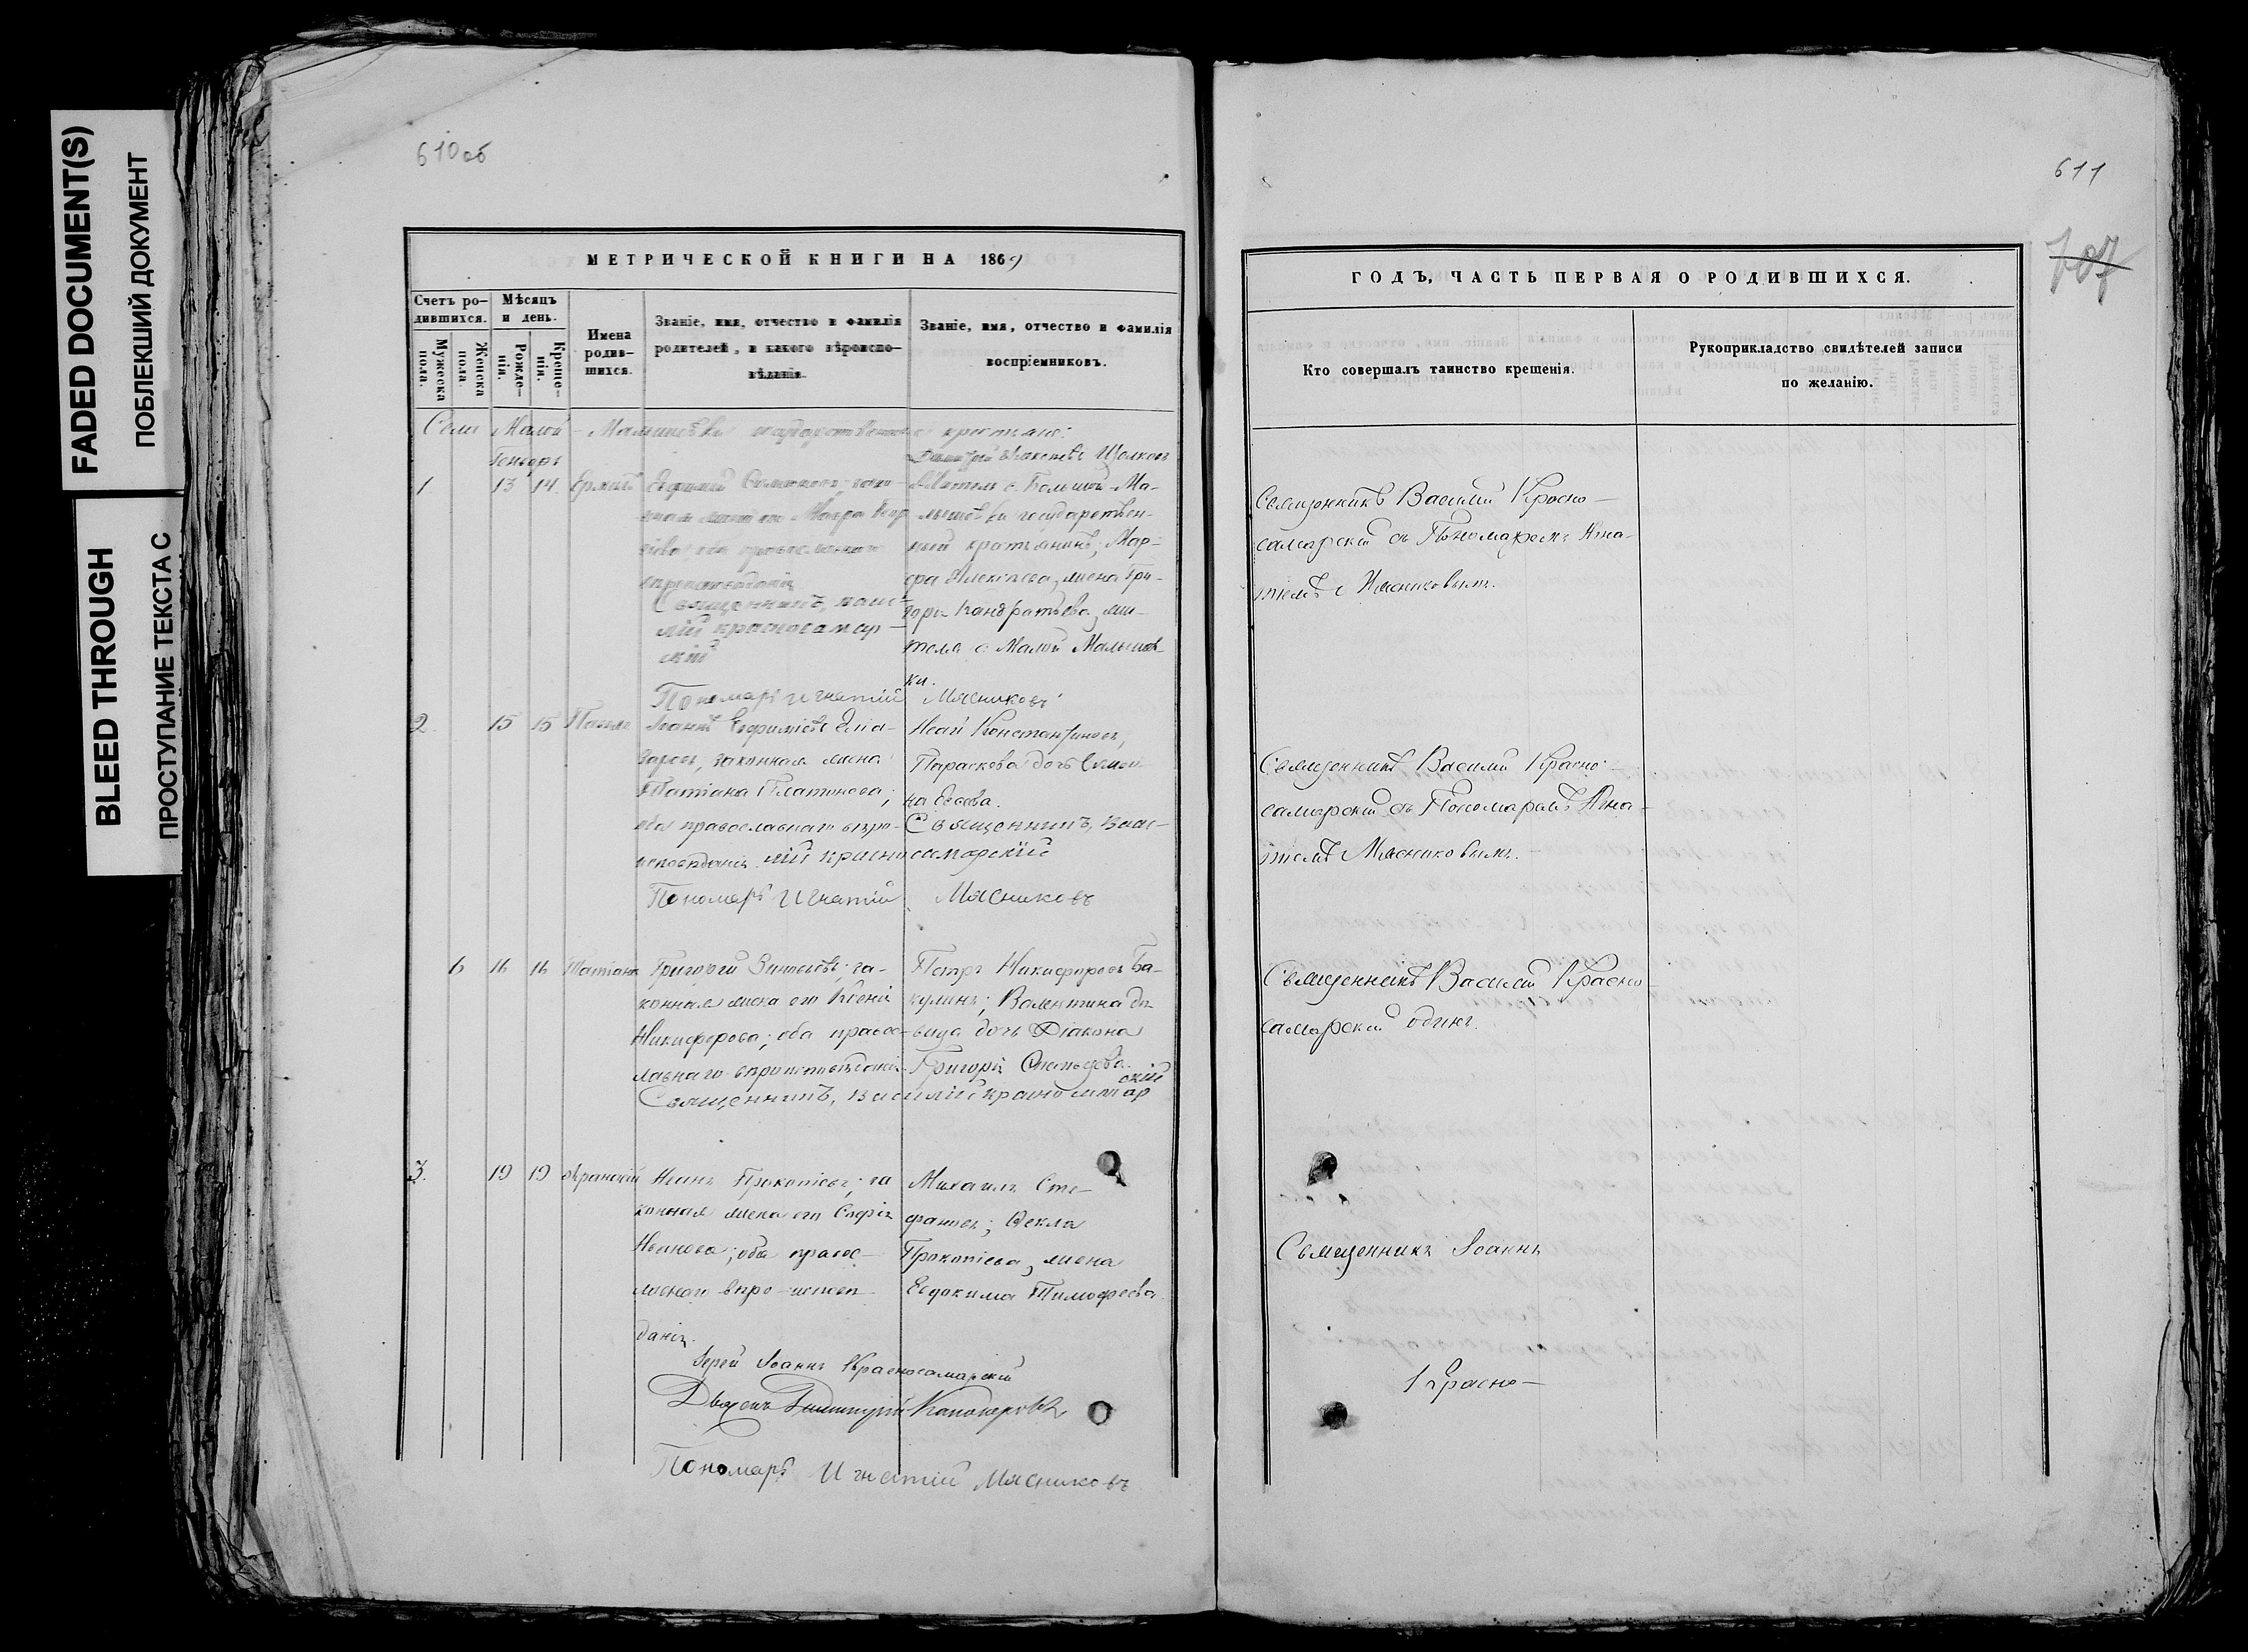 FADED DOCUMENT(S)
ПОБЛЕКШИЙ ДОКУМЕНТ
BLEED THROUGH
ПРОСТУПАНИЕ ТЕКСТА С
610об
МЕТРИЧЕСКОЙ КНИГИ НА 1869
Счетъ ро-
дившихся.
Мужеска
пола.
Женска
пола.
Мѣсяцъ
и день.
Рожде-
нія.
Креще-
нія.
Имена
родив-
шихся.
Званіе, имя, отчество и фамилія
родителей, и какого вѣроиспо-
вѣданія.
Званіе, имя, отчество и фамилія
воспріемниковъ.
Села Малой-Малышевки
Генварь
1 13 14 Ермилъ
законная жена его Мавра
Священникъ, васи-
лій красносамар-
скій
Щолковъ
Житель с. Большой-Ма-
лышевки государствен-
ный крестьянинъ; Мар-
фа Алексѣева, жена Гри-
горья Кандратьева, жи-
теля с. Малой Малышев-
ки.
Пономарь Игнатій Мясниковъ
2. 15 15 Павелъ
Іоаннъ Евфиміевъ Елиа-
заровъ, законная жена
Татіана Платонова;
оба православнаго вѣро-
исповѣданія.
Исай Константиновъ,
Параскева дочь
Священникъ, васи-
лій красносамарскій
Пономарь Игнатій Мясниковъ
6 16 16 Татіана
Григорій Зиновьевъ; за-
конная жена его Ксенія
Никифорова; оба правос-
лавнаго вѣроисповѣданія.
Петръ Никифоровъ Ба-
кулинъ; Валентина дѣ-
вица дочь Діакона
Григорія
Священникъ, василій красносамар
скій
3. 19 19
Иванъ Прокопіевъ; за
конная жена его Софія
Иванова; оба правос-
лавнаго вѣро-исповѣ
данія.
Михаилъ Сте-
фановъ; Ѳекла
Прокопіева, жена
Евдокима Тимофеева
Іерей Іоаннъ Красносамарскій
Пономарь Игнатій Мясниковъ
611
707
ГОДЪ, ЧАСТЬ ПЕРВАЯ О РОДИВШИХСЯ.
Кто совершалъ таинство крещенія.
Рукоприкладство свидѣтелей записи
по желанію.
Священникъ Василій Красно-
самарскій съ Пономаремъ Игна-
тіемъ Мясниковымъ.
Священникъ Василій Красно-
самарскій съ Пономаремъ Игна-
тіемъ Мясниковымъ.
Священникъ Василій Красно
самарскій одинъ.
Священникъ Іоаннъ
Красно-